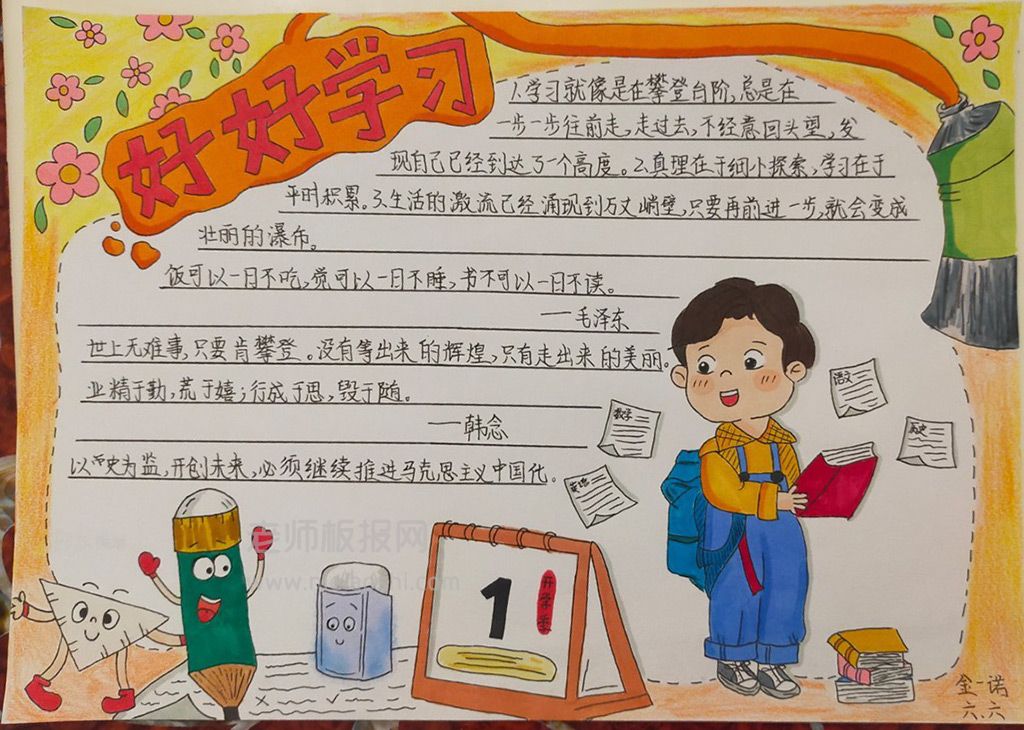 好好学习
1.学习就像是在攀登台阶,总是在
一步一步往前走,走过去,不经意回头望,发
现自己已经到达了一个高度。2.真理在于细小探索,学习在于
平时积累。3.生活的激流已经涌现到万丈峭壁,只要再前进一步,就会变成
壮丽的瀑布。
饭可以一日不吃,觉可以一日不睡,书不可以一日不读。
——毛泽东
世上无难事,只要肯攀登。没有等出来的辉煌,只有走出来的美丽。
业精于勤,荒于嬉;行成于思,毁于随。
——韩念
以历史为监,开创未来,必须继续推进马克思主义中国化。
语文
数学
历史
英语
1
开学季
老师板报网
金一诺
六、六